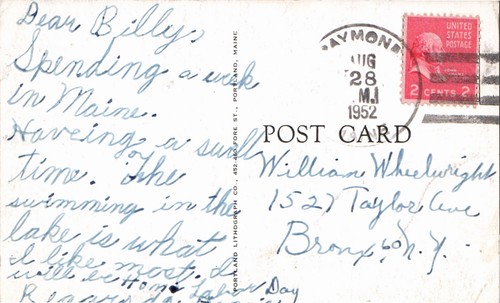 Dear Billy,
Spending a week
in Maine.
Haveing a swell
time. The
swimming in the
lake is what
I like most. I
will be home Labor Day
PORTLAND LITHOGRAPH CO., FORE ST., PORTLAND, MAINE
RAYMOND
AUG
28
M.
1952
UNITED
STATES
POSTAGE
2 CENTS 2
POST CARD
William Wheelwright
1527 Taylor Ave
Bronx 60 N.Y.